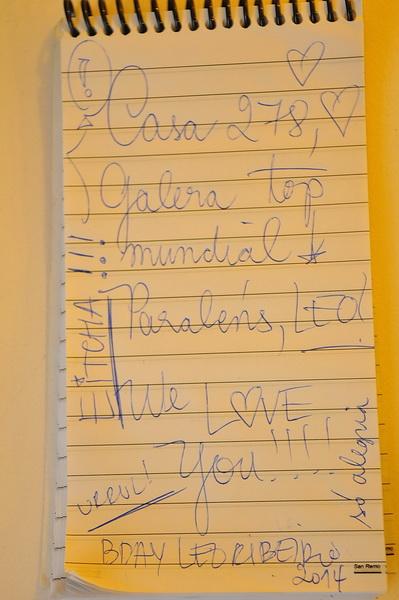 Casa 278,
Galera top
mundial
Parabéns, LEO!
We LOVE
You!!!!
EITCHA!!!
uruul!
só alegria
BDAY LEO RIBEIRO
2014
San Remo